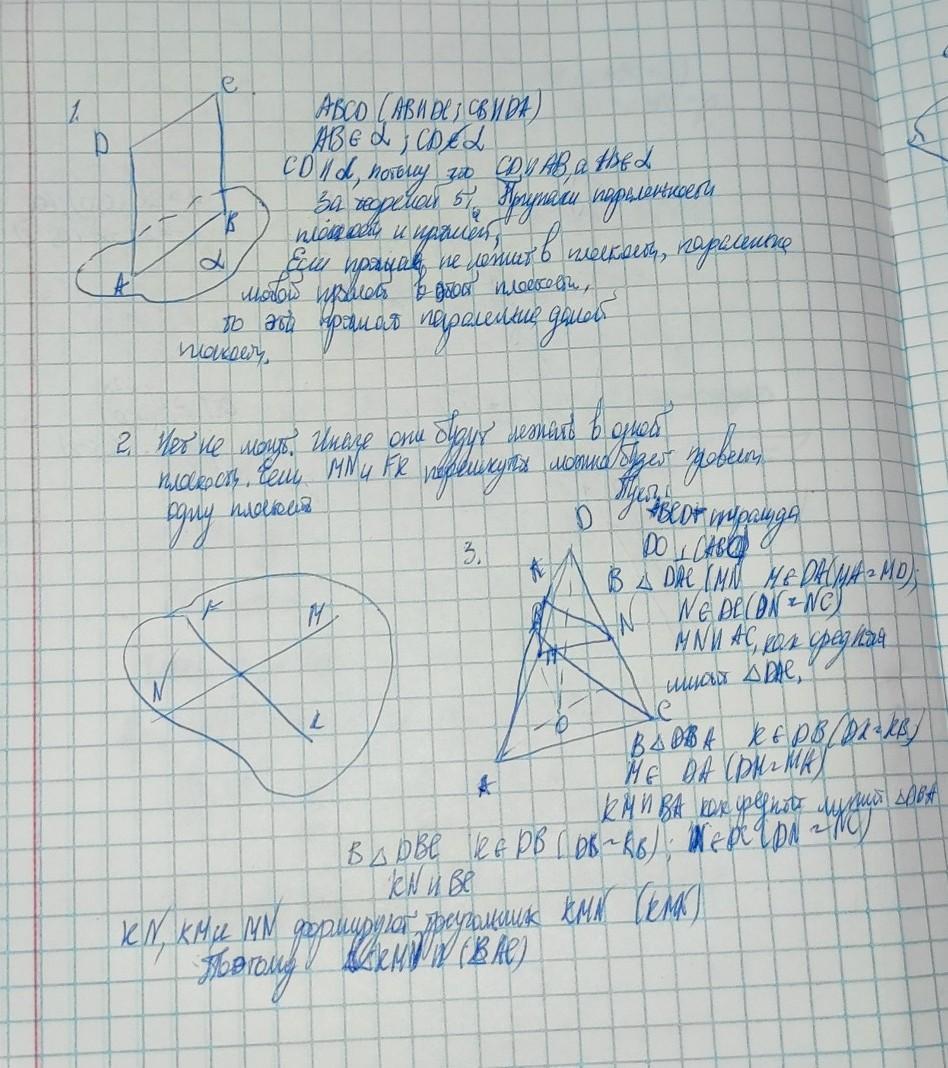 1.
D
C
A
B
α
ABCD (AB∥DC; CB∥DA)
AB∈α; CD∉α
CD∥α, потому что CD∥AB, а AB∈α
За теоремой 5.
плоскости и прямой,
Если прямая, не лежит в плоскости, паралельна
любой прямой в этой плоскости,
то эта прямая паралельна даной
плоскости.
2. Нет не могут. Иначе они будут лежать в одной
плоскости. Если MN и FK можно будет провести
одну плоскость
F
M
N
K
3.
Пусть
ABCD пирамида
DO⊥(ABC)
В △DAC (MN M∈DA(MA=MD);
N∈DC(DN=NC)
MN∥AC, как средняя
линия △DAC.
D
K
B
M
N
O
C
A
В △DBA K∈DB(DK=KB)
M∈DA(DM=MA)
KM∥BA как средняя линия △DBA
В △DBC K∈DB(DB=KB); N∈DC(DN=NC)
KN∥BC
KN, KM и MN формируют треугольник KMN
Поэтому △KMN∥(BAC)